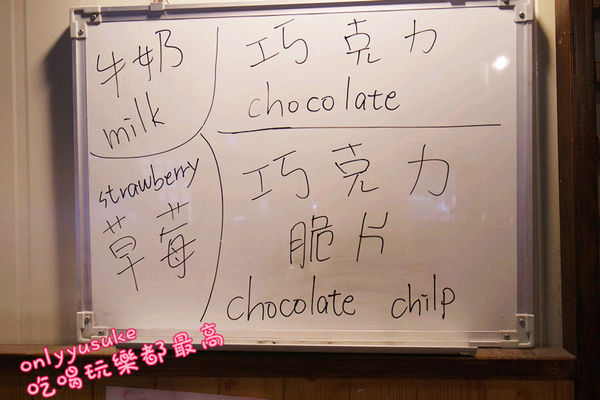 牛奶
milk
巧克力
chocolate
strawberry
草莓
巧克力
脆片
chocolate chilp
onlyyusuke
吃喝玩樂都最高